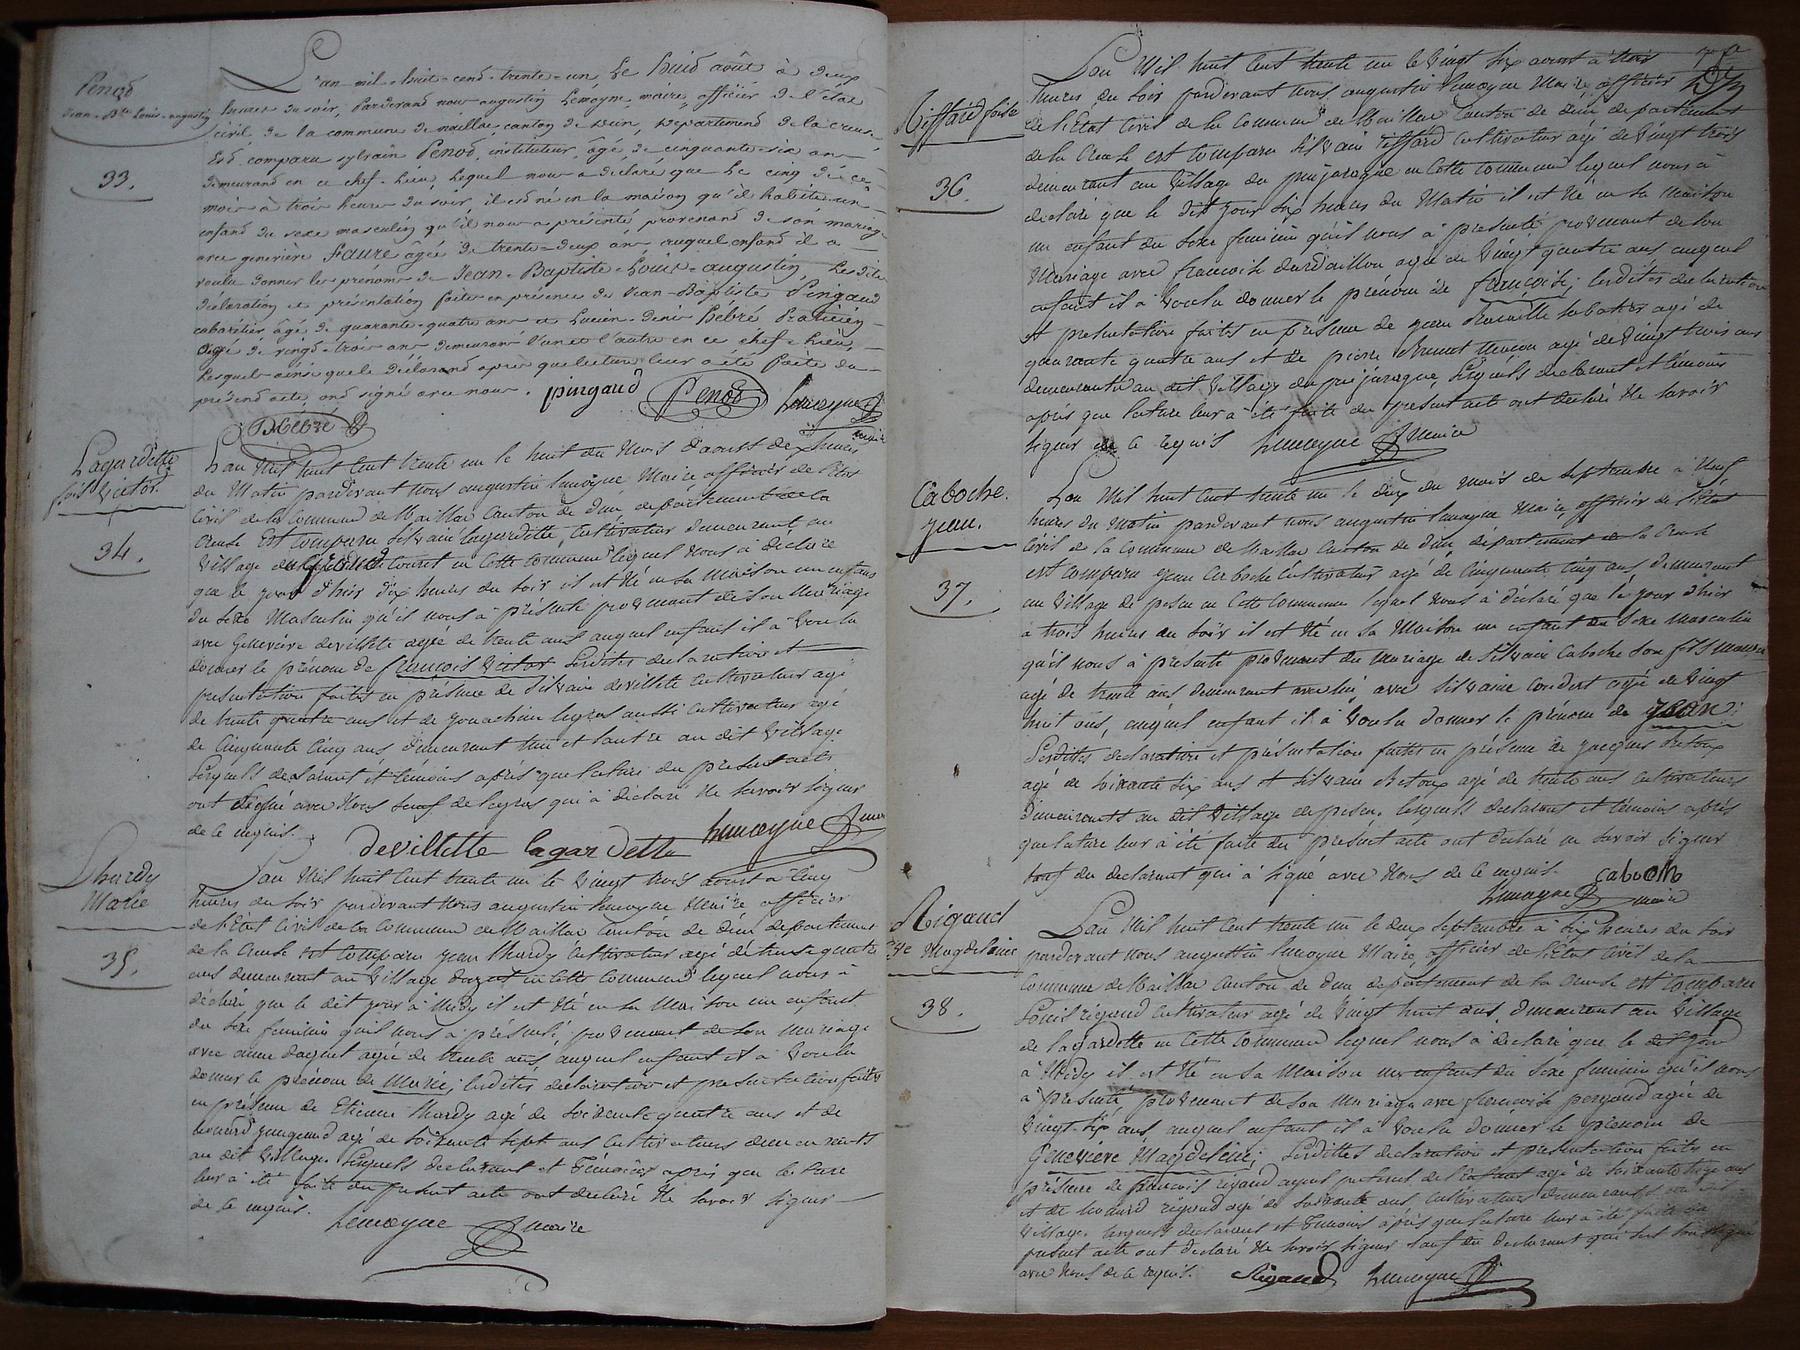 Penod
Jean-Bte Louis-augustin
33.
L'an mil-huit-cend-trente-un, Le huid août à deux
heures du soir, Pardevand nous augustin Lemoyne, maire, officier de l'état
civil de la commune de maillac canton de Dun, Département de la creuse
Est comparu sylvain Penod, instituteur, âgé de cinquante-six ans
demeurand en ce chef-Lieu, lequel nous a déclaré que Le cinq de ce
mois à trois heures du soir, il est né en la maison qu'il habite un
enfand du sexe masculin qu'il nous a présenté, provenand de son mariage
avec genevière Faure âgée de trente-deux ans auquel enfand il a
voulu donner les prénoms de Jean-Baptiste-Louis-augustin, Lesdites
déclaration et présentation faites en présence de Jean-Baptiste Pingaud
cabaretier âgé de quarante-quatre ans et Lucien-Denis Hébré
âgé de vingt-trois ans demeurant l'un et l'autre en ce chef-Lieu,
Lesquels ainsi que le déclarand après que lecture leur a été faite du
présend acte, ond signé avec nous. pingaud Penod Lemoyne
DHébré
Lagardette
fois Victor
34.
L'an Mil huit Cent trente un le huit du Mois d'aoust de heures
du Matin pardevant Nous augustin lemoyne Maire officier de l'état
Civil de la Commune de Maillac Canton de dun, département de la
Creuse Est comparu Silvain lagardette, Cultivateur demeurant au
Village en Cette Commune lequel Nous à déclaré
que le jour d'hier dix heures du soir il est Né en sa Maison un enfant
du Sexe Masculin qu'il nous à présenté provenant de son Mariage
avec Genevieve devillette agée de trente ans auquel enfant il à voulu
donner le prénom de François Victor Lesdites déclaration et
présentation faites en présence de Silvain devillette Cultivateur agé
de trente quatre ans et de jouachim legros aussi Cultivateur agé
de Cinquante Cinq ans demeurant l'un et l'autre au dit Village
lesquels declarant et témoins après que lecture du présent acte
ont Signé avec Nous sauf de legros qui à déclaré Ne savoir signer
de ce requis. Devillette lagardette Lemoyne maire
Lhurdy
Marie
35.
L'an Mil huit Cent trente un le Vingt trois aoust à Cinq
heures du soir pardevant Nous augustin lemoyne Maire officier
de l'état Civil de la Commune de Maillac Canton de dun département
de la Creuse est comparu jean lhurdy Cultivateur agé de trente quatre
ans demeurant au Village en Cette Commune lequel nous à
déclaré que le dit jour à Midy il est Né en sa Maison un enfant
du Sexe feminin quil nous à présenté, provenant de son Mariage
avec anne agée de trente ans, auquel enfant il à voulu
donner le prénom de Marie; lesdites déclaration et présentation faites
en présence de Etienne lhurdy agé de soixante quatre ans et de
leonard agé de soixante sept ans Cultivateurs demeurants
au dit Village. lesquels declarant et Témoins après que lecture
leur à été faite du présent acte ont declaré Ne savoir signer
de ce requis. Lemoyne maire
Riffard foise
36.
L'an Mil huit Cent trente un le Vingt six aoust à trois
heures du soir pardevant Nous augustin lemoyne Maire officier
de l'état Civil de la Commune de Maillac Canton de dun departement
de la Creuse est comparu Silvain riffard Cultivateur agé de Vingt trois
demeurant au Village du en Cette Commune lequel nous à
declaré que le dit jour six heures du Matin il est Né en sa Maison
un enfant du Sexe feminin quil nous à présenté provenant de son
Mariage avec francoise agée de Vingt quatre ans auquel
enfant il à Voulu donner le prénom de francoise; lesdites declaration
et présentation faites en présence de jean sabotier agé de
quarante quatre ans et de pierre Brunet Macon agé de Vingt trois ans
demeurants au dit Village du lesquels declarant et témoins
après que lecture leur à été faite du présent acte ont declaré Ne savoir
signer de ce requis Lemoyne maire
Caboche.
jean.
37.
L'an Mil huit Cent trente un le dix du Mois de Septembre à Neuf
heures du Matin pardevant nous augustin lemoyne Maire officier de l'état
Civil de la Commune de Maillac Canton de dun, département de la Creuse
est comparu jean Caboche Cultivateur agé de Cinquante Cinq ans demeurant
au Village de en Cette Commune lequel Nous à déclaré que le jour d'hier
à trois heures du soir il est Né en sa Maison un enfant du Sexe Masculin
qu'il nous à présenté provenant du Mariage de Silvain Caboche son fils
agé de trente ans demeurant avec lui avec Silvaine agée de Vingt
huit ans, auquel enfant il à Voulu donner le prénom de jean;
Lesdites declaration et présentation faites en présence de jacques
agé de soixante six ans et Silvain agé de trente ans Cultivateurs
demeurants au dit Village de lesquels declarant et témoins après
que lecture leur à été faite du présent acte ont declaré ne savoir signer
sauf du declarant qui à signé avec Nous de ce requis. caboche
Lemoyne maire
Rigaud
Gve Magdelaine
38.
L'an Mil huit Cent trente un le deux septembre à Six heures du soir
pardevant Nous augustin lemoyne Maire officier de l'état Civil de la
Commune de Maillac Canton de dun departement de la Creuse est Comparu
Louis rigaud Cultivateur agé de Vingt huit ans, demeurant au Village
de lagardette en Cette Commune lequel nous à declaré que le dit jour
à Midy il est Né en sa Maison un enfant du Sexe feminin qu'il nous
à présenté provenant de son Mariage avec francoise agée de
Vingt six ans auquel enfant il à Voulu donner le prénom de
Genevieve Magdelaine; Lesdittes declaration et présentation faites en
présence de francois rigaud ayeul paternel de l'enfant agé de soixante ans
et de leonard rigaud agé de soixante ans Cultivateurs demeurants au dit
Village lesquels declarant et Témoins après que lecture leur à été faite du
présent acte ont declaré Ne savoir signer sauf du declarant qui
avec Nous de ce requis. Rigaud Lemoyne